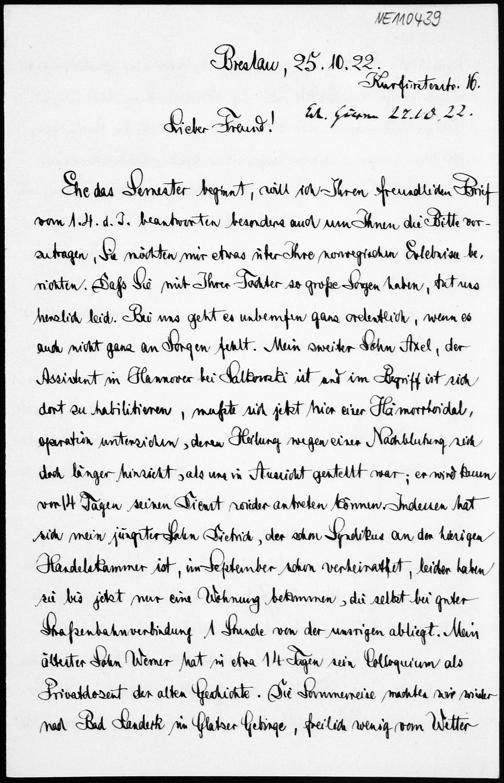 NE110439
Breslau, 25.10.22.
Kurfürstenstr. 16.
27.10.22.
Lieber Freund!
Ehe das Semester beginnt, will ich Ihren freundlichen Brief
vom 1.4. d. J. beantworten besonders auch um Ihnen die Bitte vor-
zutragen, Sie möchten mir etwas über Ihre norwegischen Erlebnisse be-
richten. Daß Sie mit Ihrer Tochter so große Sorgen haben, tut uns
herzlich leid. Bei uns geht es unberufen ganz ordentlich, wenn es
auch nicht ganz an Sorgen fehlt. Mein zweiter Sohn Axel, der
Assistent in Hannover bei Salkowski ist und im Begriff ist sich
dort zu habilitieren, mußte sich jetzt hier einer Hämorrhoidal,
operation unterziehen, deren Heilung wegen einer Nachblutung sich
doch länger hinzieht, als uns in Aussicht gestellt war; er wird kaum
vor 14 Tagen seinen Dienst wieder antreten können. Indessen hat
sich mein jüngster Sohn Dietrich, der schon Syndikus an der hiesigen
Handelskammer ist, im September schon verheiratet, leider haben
sie bis jetzt nur eine Wohnung bekommen, die selbst bei guter
Straßenbahnverbindung 1 Stunde von der unsrigen abliegt. Mein
ältester Sohn Werner hat in etwa 14 Tagen sein Colloquium als
Privatdozent der alten Geschichte. Die Sommerreise machten wir wieder
nach Bad Landeck im Glatzer Gebirge, freilich wenig vom Wetter